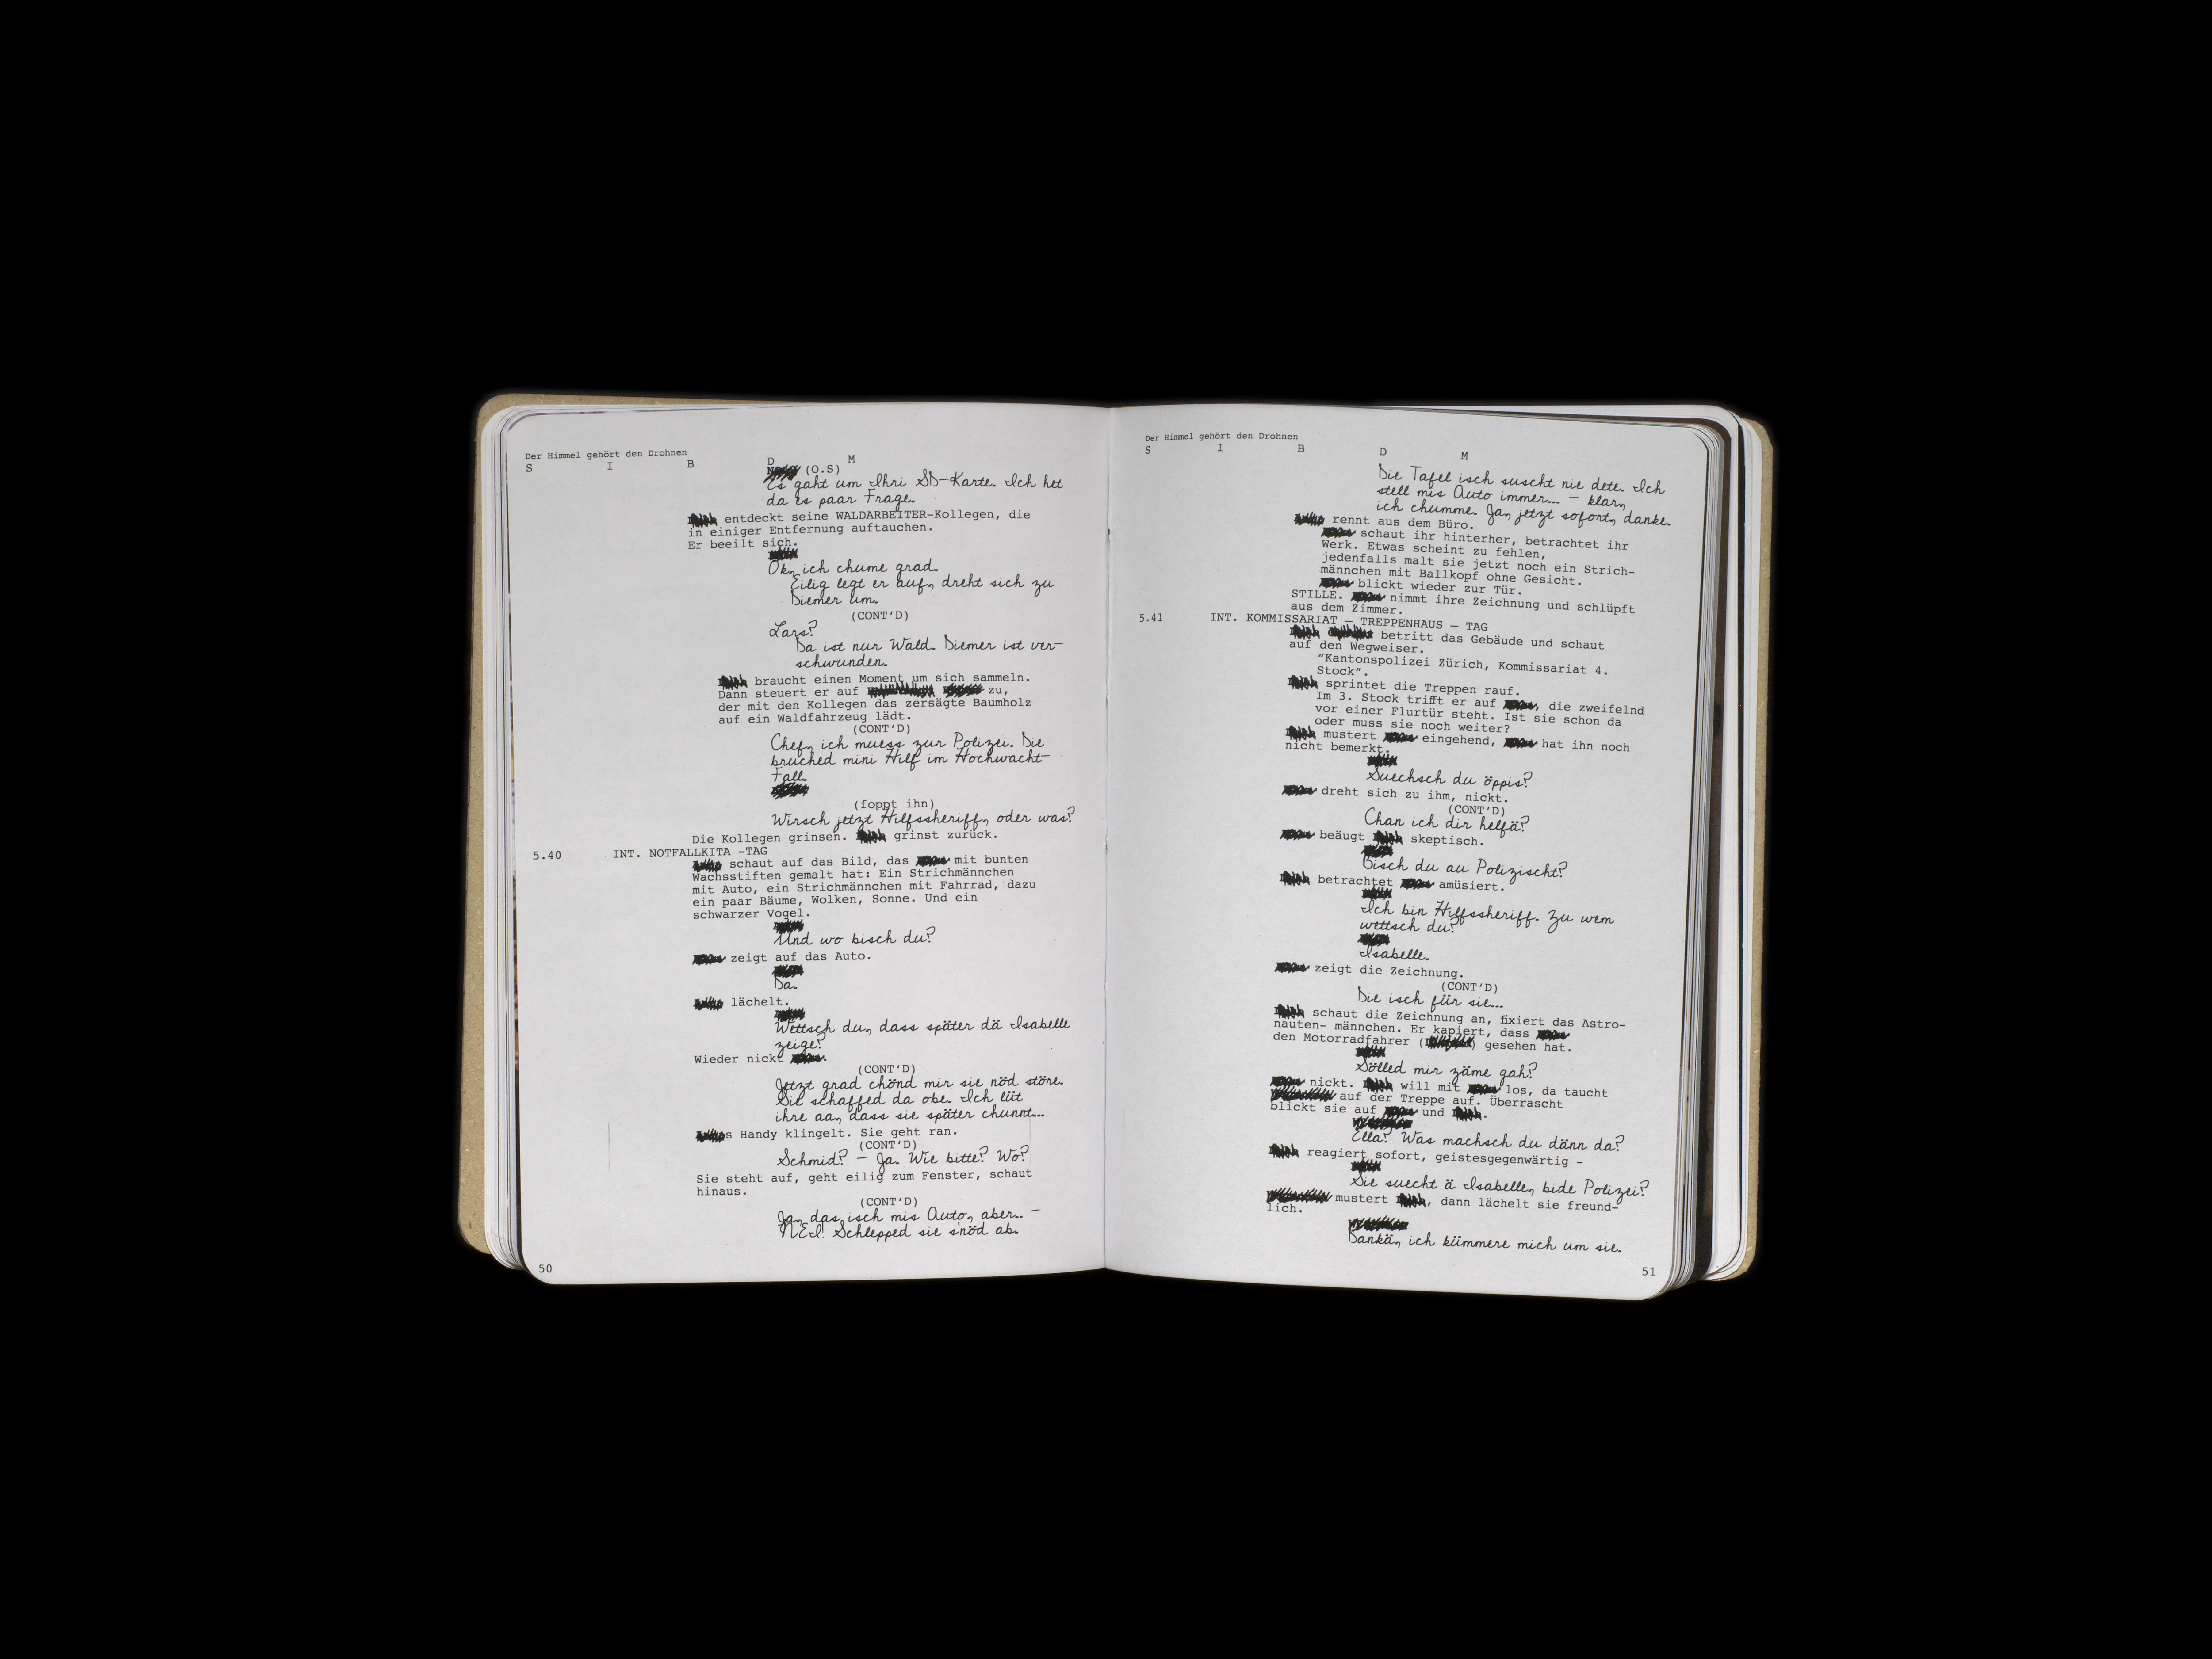 Der Himmel gehört den Drohnen
S I B D M
(O.S)
Es gaht um Ihri SD-Karte. Ich het
da es paar Frage.
entdeckt seine WALDARBEITER-Kollegen, die
in einiger Entfernung auftauchen.
Er beeilt sich.
Ok, ich chume grad.
Eilig legt er auf, dreht sich zu
Diemer um.
(CONT'D)
Lars?
Da ist nur Wald. Diemer ist ver-
schwunden.
braucht einen Moment um sich sammeln.
Dann steuert er auf zu,
der mit den Kollegen das zersägte Baumholz
auf ein Waldfahrzeug lädt.
(CONT'D)
Chef, ich muess zur Polizei. Die
bruched mini Hilf im Hochwacht-
Fall.
(foppt ihn)
Wirsch jetzt Hilfssheriff, oder was?
Die Kollegen grinsen. grinst zurück.
5.40 INT. NOTFALLKITA -TAG
schaut auf das Bild, das mit bunten
Wachsstiften gemalt hat: Ein Strichmännchen
mit Auto, ein Strichmännchen mit Fahrrad, dazu
ein paar Bäume, Wolken, Sonne. Und ein
schwarzer Vogel.
Und wo bisch du?
zeigt auf das Auto.
Da.
lächelt.
Wettsch du, dass später dä Isabelle
zeige?
Wieder nickt .
(CONT'D)
Jetzt grad chönd mir sie nöd störe.
Sie schaffed da obe. Ich lüt
ihre aa, dass sie später chunnt...
s Handy klingelt. Sie geht ran.
(CONT'D)
Schmid? - Ja. Wie bitte? Wo?
Sie steht auf, geht eilig zum Fenster, schaut
hinaus.
(CONT'D)
Ja, das isch mis Auto, aber... -
NEI! Schlepped sie s'nöd ab.
50
Der Himmel gehört den Drohnen
S I B D M
Die Tafel isch suscht nie dete. Ich
stell mis Auto immer... - klar,
ich chumme. Ja, jetzt sofort, danke.
rennt aus dem Büro.
schaut ihr hinterher, betrachtet ihr
Werk. Etwas scheint zu fehlen,
jedenfalls malt sie jetzt noch ein Strich-
männchen mit Ballkopf ohne Gesicht.
blickt wieder zur Tür.
STILLE. nimmt ihre Zeichnung und schlüpft
aus dem Zimmer.
5.41 INT. KOMMISSARIAT – TREPPENHAUS – TAG
betritt das Gebäude und schaut
auf den Wegweiser.
"Kantonspolizei Zürich, Kommissariat 4.
Stock".
sprintet die Treppen rauf.
Im 3. Stock trifft er auf , die zweifelnd
vor einer Flurtür steht. Ist sie schon da
oder muss sie noch weiter?
mustert eingehend, hat ihn noch
nicht bemerkt.
Suechsch du öppis?
dreht sich zu ihm, nickt.
(CONT'D)
Chan ich dir helfä?
beäugt skeptisch.
Bisch du au Polizischt?
betrachtet amüsiert.
Ich bin Hilfssheriff. Zu wem
wettsch du?
Isabelle.
zeigt die Zeichnung.
(CONT'D)
Die isch für sie...
schaut die Zeichnung an, fixiert das Astro-
nauten- männchen. Er kapiert, dass
den Motorradfahrer ( ) gesehen hat.
Sölled mir zäme gah?
nickt. will mit los, da taucht
auf der Treppe auf. Überrascht
blickt sie auf und .
Ella? Was machsch du dänn da?
reagiert sofort, geistesgegenwärtig -
Sie suecht ä Isabelle, bide Polizei?
mustert , dann lächelt sie freund-
lich.
Dankä, ich kümmere mich um sie.
51